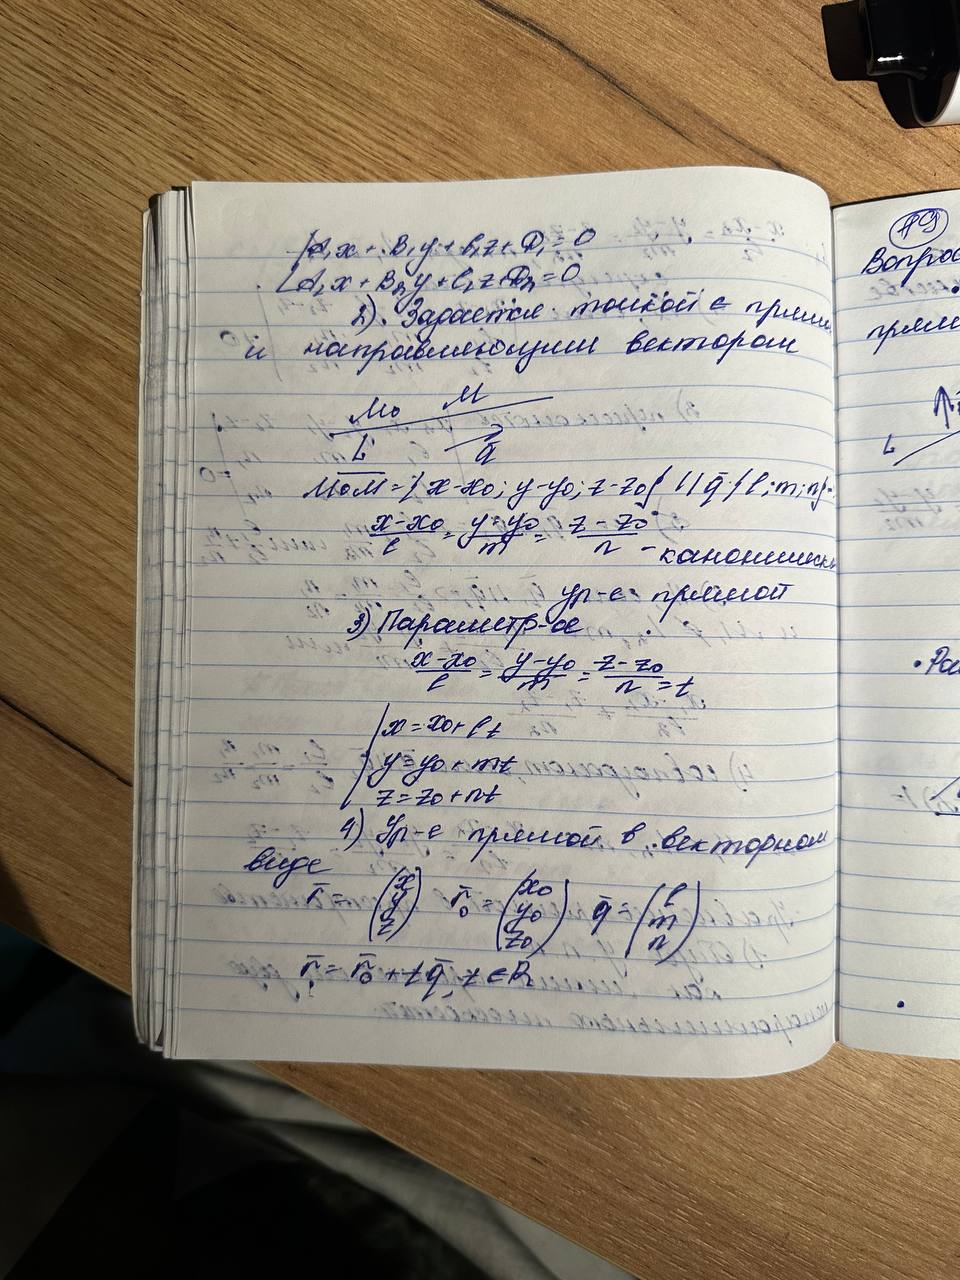 A₁x + B₁y + C₁z + D₁ = 0
A₂x + B₂y + C₂z + D₂ = 0
2). Задаётся точкой ∈ прямо
и направляющим вектором
M₀ M
L q̄
M₀M = {x-x₀; y-y₀; z-z₀} || q̄ {l; m; n} -
(x-x₀)/l = (y-y₀)/m = (z-z₀)/n - каноническ
ур-е прямой
3) Параметр-ое
(x-x₀)/l = (y-y₀)/m = (z-z₀)/n = t
x = x₀ + lt
y = y₀ + mt
z = z₀ + nt
4) Ур-е прямой в векторном
виде
r̄ = (x y z) r̄₀ = (x₀ y₀ z₀) q̄ = (l m n)
r̄ = r̄₀ + t q̄, t ∈ R
19
Вопрос
прям
L
• Рас